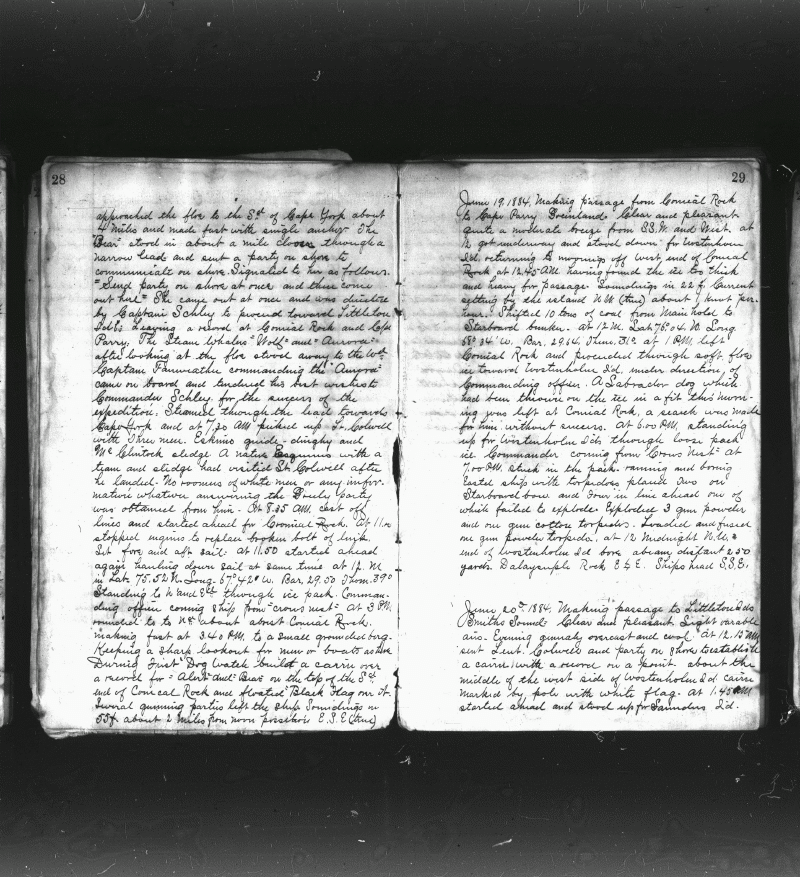 28
approached the floe to the Sd of Cape York about
4 miles and made fast with single anchor. The
"Bear" stood in about a mile closer through a
narrow lead and sent a party on shore to
communicate on shore. Signaled to her as follows.
"Send party on shore at once and then come
out here" She came out at once and was directed
by Captain Schley to proceed toward Littleton
Id. leaving a record at Conical Rock and Cape
Parry. The Steam Whalers "Wolf" and "Aurora"
after looking at the floe stood away to the Wd
Captain Fairweather commanding the "Aurora"
came on board and tendered his best wishes to
Commander Schley for the success of the
expedition. Steamed through the lead towards
Cape York and at 7.20 AM picked up Lt. Colwell
with three men. Eskimo guide - dinghy and
McClintock sledge. A native Esquimo with a
team and sledge had visited Lt Colwell after
he landed. No rumors of white men or any infor-
mation whatever answering the Greely party
was obtained from him. At 8.35 AM. cast off
lines and started ahead for Conical Rock. At 11
stopped engines to replace broken bolt of
Set fore and aft sail. At 11.50 started ahead
again hauling down sail at same time at 12. M
in Lat. 75.52 N. Long. 67°42' W. Bar. 29.50 Thom. 39°
Standing to N and Ed through ice pack. Comman-
ding officer conning ship from "crows nest" At 3 PM.
rounded to to Nd about abrest Conical Rock.
making fast at 3.40 P.M. to a small grounded berg.
Keeping a sharp lookout for men or boats ashore
During First Dog Watch built a cairn over
a record for "Alert" and "Bear" on the top of the Sd
end of Conical Rock and floated Black Flag over it.
Several gunning parties left the ship. Soundings in
55 f. about 2 miles from noon position E.S.E (true)
29
June 19. 1884. Making passage from Conical Rock
to Cape Parry Greenland. Clear and pleasant
quite a moderate breeze from S.S.W. and West. at
12 got underway and stood down for Wostenholm
Id. returning to moorings off West end of Conical
Rock at 12.45 AM. having found the ice too thick
and heavy for passage. Soundings in 22 f. Current
setting by the island N.W (true) about 1 knot per.
hour. Shifted 10 tons of coal from Main hold to
Starboard bunker. At 12 M. Lat 76°04' N. Long.
68° 34' W. Bar. 29.64. Thom. 31°. at 1 PM. left
Conical Rock and proceeded through soft floe
ice toward Wostenholm Id. under direction of
Commanding officer. A Labrador dog which
had been thrown on the ice in a fit this morn-
ing was left at Conical Rock, a search was made
for him without success. At 6.00 P.M. standing
up for Wostenholm Ids through loose pack
ice. Commander conning from Crows Nest. At
7.00 P.M. stuck in the pack. ramming and boring
Eased ship with torpedoes placed two on
Starboard bow and four in line ahead one of
which failed to explode. Exploded 3 gun powder
and one gun cotton torpedo. Loaded and fused
one gun powder torpedo. at 12 Midnight N.W.
end of Wostenholm Id bore abeam distant 250
yards. Dalrymple Rock E ½ E. Ships head S.S.E.
June 20th 1884. Making passage to Littleton Ids
Smiths Sound. Clear and pleasant. Light variable
airs. Evening generally overcast and cool. At 12.15 AM
sent Lieut. Colwell and party on shore to establish
a cairn with a record on a point about the
middle of the west side of Wostenholm Id. cairn
marked by pole with white flag. At 1.45 AM
started ahead and stood up for Saunders Id.